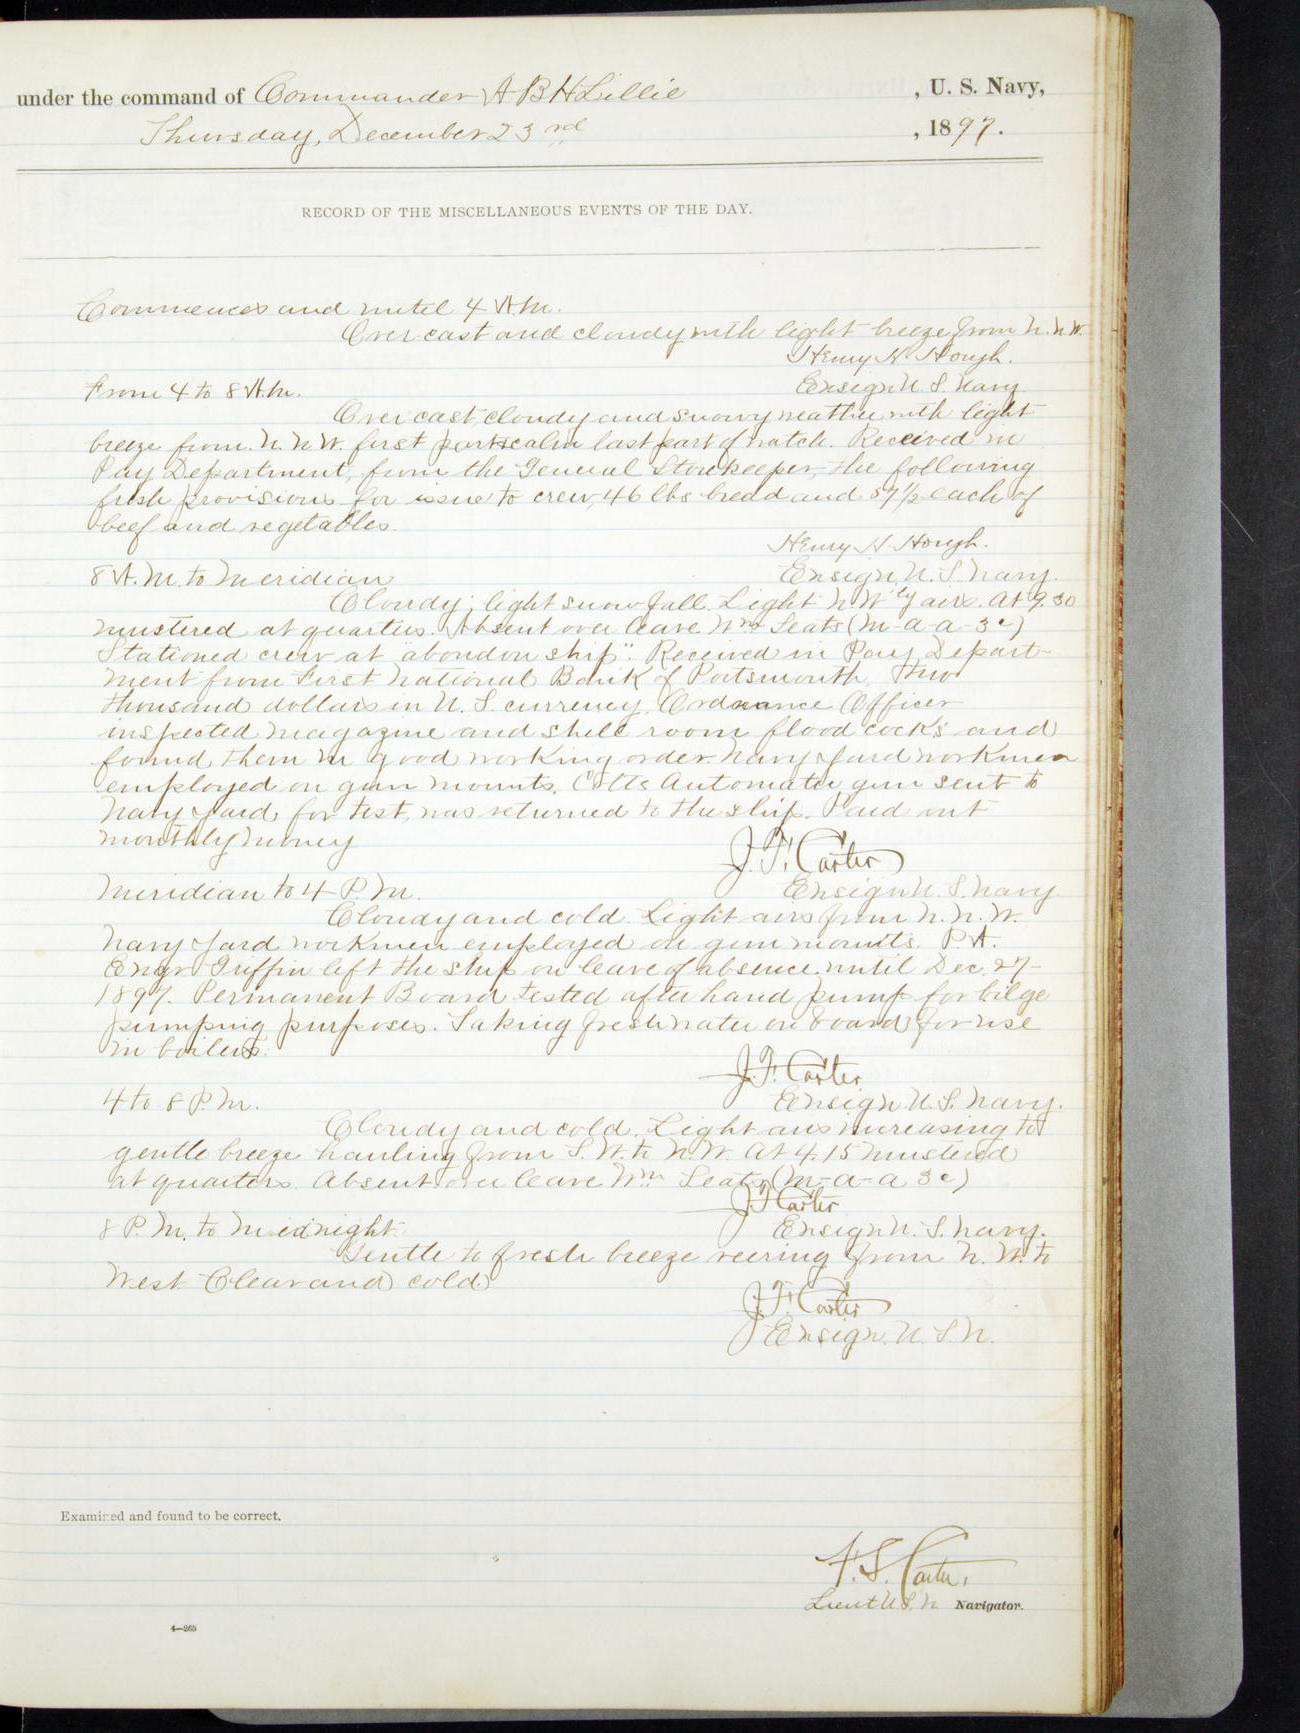 under the command of Commander A B H Lillie , U. S. Navy,
Thursday, December 23rd , 1897.
RECORD OF THE MISCELLANEOUS EVENTS OF THE DAY.
Commences and until 4 A.M.
Overcast and cloudy with light breeze from N.N.W.
Henry H. Hough.
Ensign U. S. Navy
From 4 to 8 A.M.
Overcast, cloudy and snowy weather with light
breeze from N.N.W. first part calm last part of watch. Received in
Pay Department, from the General Storekeeper, the following
fresh provisions for issue to crew, 46 lbs bread and 57 1/2 each of
beef and vegetables.
Henry H. Hough.
Ensign, U. S. Navy.
8 A.M. to Meridian
Cloudy; light snow fall. Light NW'ly airs. At 9.30
mustered at quarters. Absent over leave Wm Seats (M-a-a-3c)
Stationed crew at "abandon ship". Received in Pay Depart-
ment from First National Bank of Portsmouth, Two
thousand dollars in U. S. currency. Ordnance Officer
inspected magazine and shell room flood cocks and
found them in good working order. Navy Yard workmen
employed on gun mounts. Colts Automatic gun sent to
Navy Yard, for test, was returned to the ship. Paid out
monthly money
J. F. Carter
Ensign U. S. Navy
Meridian to 4 P.M.
Cloudy and cold. Light airs from N.N.W.
Navy Yard workmen employed on gun mounts. P.A.
Engr Griffin left the ship on leave of absence until Dec. 27-
1897. Permanent Board tested after hand pump for bilge
pumping purposes. Taking fresh water on board for use
in boilers.
J. F. Carter
Ensign U. S. Navy.
4 to 8 P.M.
Cloudy and cold. Light airs increasing to
gentle breeze hauling from S.W. to N.W. At 4.15 mustered
at quarters. Absent over leave Wm Seats (M-a-a 3c)
J F Carter
Ensign U. S. Navy.
8 P.M. to Midnight.
Gentle to fresh breeze veering from N.W. to
West. Clear and cold.
J. F. Carter
Ensign. U. S. N.
Examined and found to be correct.
F. S. Carter,
Lieut U. S. N Navigator.
4—265